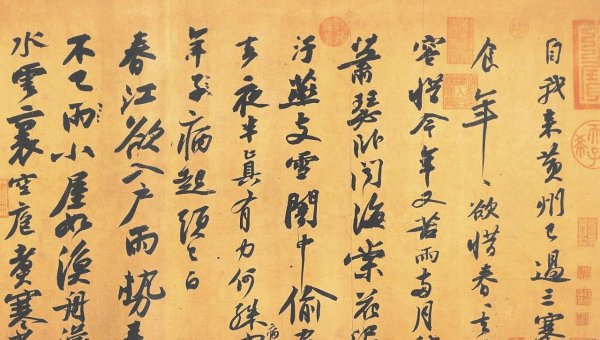 自我來黃州已過三寒
食年〻欲惜春〻去
容惜今年又苦雨兩月
蕭瑟臥聞海棠花泥
汙燕支雪闇中偷
去夜半真有力何殊
年子病起須已白
春江欲入戶雨勢
不已雨小屋如漁舟濛
水雲裏空庖煮寒